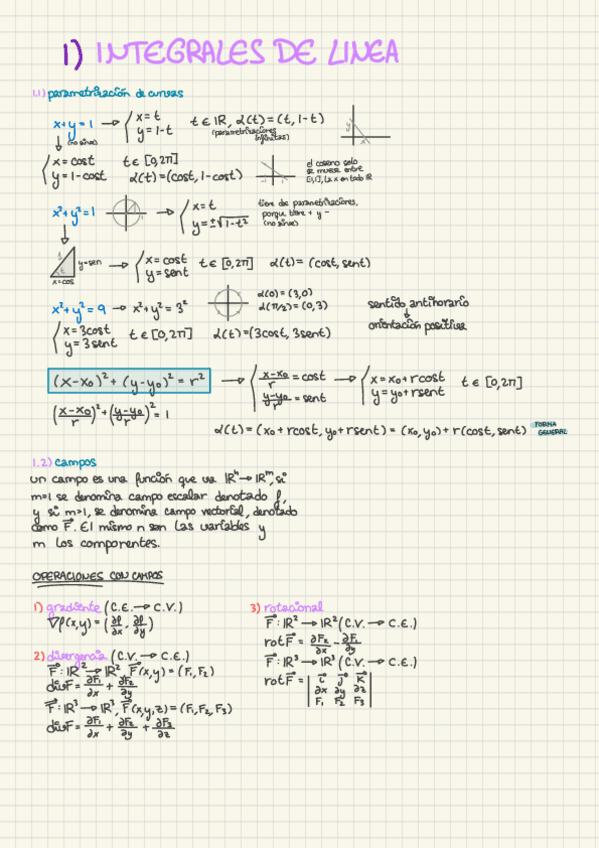 1) INTEGRALES DE LINEA
1.1) parametrización de curvas
x+y=1 → { x=t y=1-t t ∈ IR, α(t)=(t, 1-t)
(parametrizaciones infinitas)
(no sirve)
{ x=cost y=1-cost t ∈ [0,2π] α(t)=(cost, 1-cost)
el coseno solo
se mueve entre
[-1,1], la x en todo IR
x²+y²=1 → { x=t y=±√1-t²
tiene dos parametrizaciones,
porque tiene + y -
(no sirve)
y=sen
x=cos
→ { x=cost y=sent t ∈ [0,2π] α(t)=(cost, sent)
x²+y²=9 → x²+y²=3²
α(0)=(3,0)
α(π/2)=(0,3)
sentido antihorario
↓
orientación positiva
{ x=3cost y=3sent t ∈ [0,2π] α(t)=(3cost, 3sent)
(x-x₀)²+(y-y₀)²=r² → { (x-x₀)/r = cost (y-y₀)/r = sent → { x=x₀+rcost y=y₀+rsent t ∈ [0,2π]
((x-x₀)/r)²+((y-y₀)/r)²=1
α(t)=(x₀+rcost, y₀+rsent)=(x₀,y₀)+r(cost, sent) FORMA GENERAL
1.2) campos
un campo es una función que va IRⁿ→IRᵐ, si
m=1 se denomina campo escalar denotado f,
y si m>1, se denomina campo vectorial, denotado
como F⃗. El mismo n son las variables y
m los componentes.
OPERACIONES CON CAMPOS
1) gradiente (C.E. → C.V.)
∇f(x,y)=(∂f/∂x, ∂f/∂y)
2) divergencia (C.V. → C.E.)
F⃗: IR² → IR² F⃗(x,y)=(F₁,F₂)
divF⃗ = ∂F₁/∂x + ∂F₂/∂y
F⃗: IR³ → IR³, F⃗(x,y,z)=(F₁,F₂,F₃)
divF⃗ = ∂F₁/∂x + ∂F₂/∂y + ∂F₃/∂z
3) rotacional
F⃗: IR² → IR² (C.V. → C.E.)
rotF⃗ = ∂F₂/∂x - ∂F₁/∂y
F⃗: IR³ → IR³ (C.V. → C.E.)
rotF⃗ = | i⃗ j⃗ k⃗
∂x ∂y ∂z
F₁ F₂ F₃ |